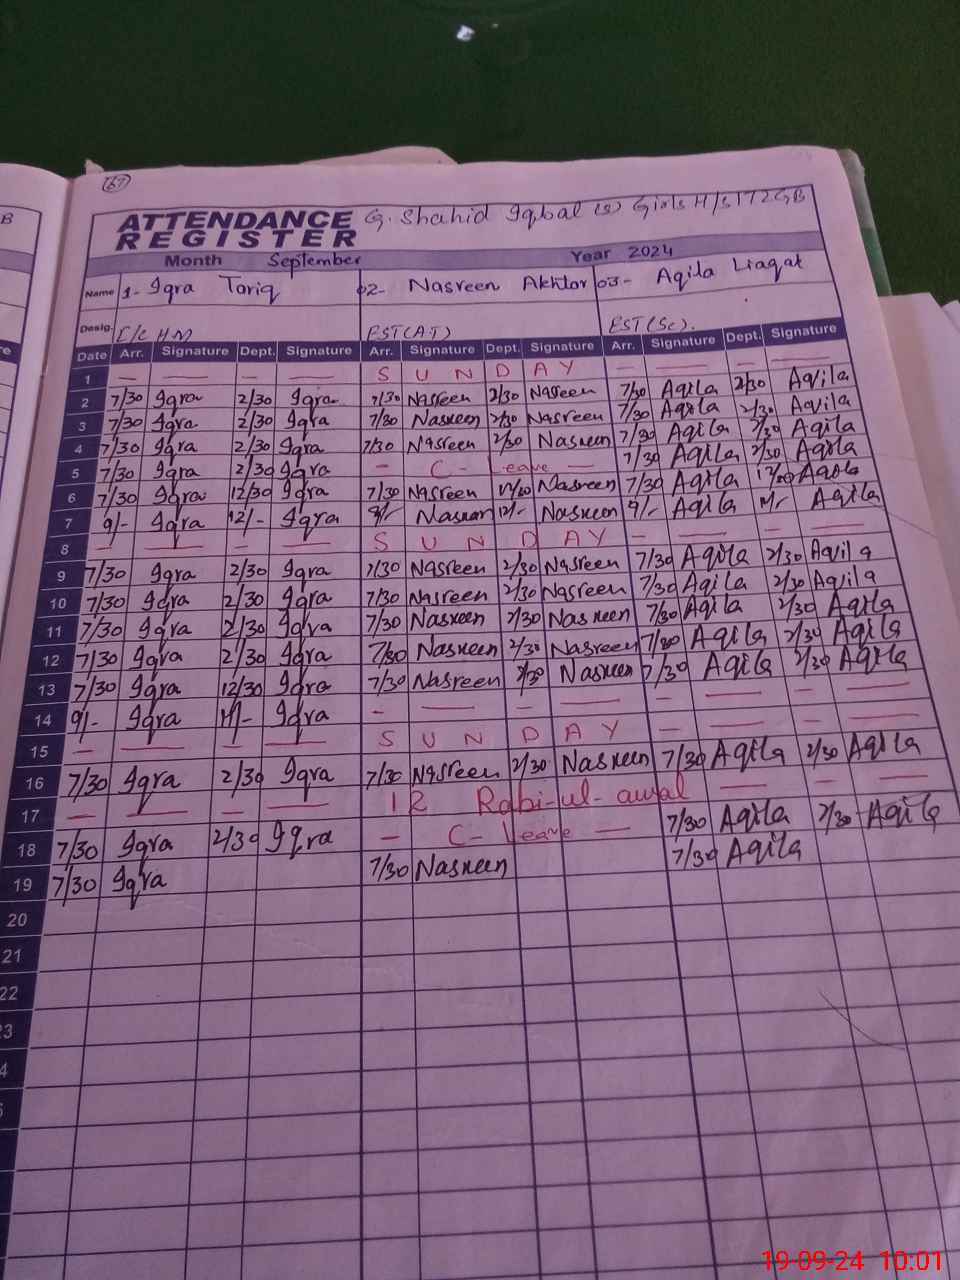 67
B
ATTENDANCE REGISTER G. Shahid Iqbal (S) Girls H/S 172GB
Month September Year 2024
Name 1- Iqra Tariq 02- Nasreen Akhtar 03- Aqila Liaqat
Desig. I/C H.M EST(A.T) EST(Sc).
Date Arr. Signature Dept. Signature Arr. Signature Dept. Signature Arr. Signature Dept. Signature
1 — — — — S U N D A Y — — — —
2 7/30 Iqra 2/30 Iqra 7/30 Nasreen 2/30 Nasreen 7/30 Aqila 2/30 Aqila
3 7/30 Iqra 2/30 Iqra 7/30 Nasreen 2/30 Nasreen 7/30 Aqila 2/30 Aqila
4 7/30 Iqra 2/30 Iqra 7/30 Nasreen 2/30 Nasreen 7/30 Aqila 2/30 Aqila
5 7/30 Iqra 2/30 Iqra — C - Leave — 7/30 Aqila 2/30 Aqila
6 7/30 Iqra 12/30 Iqra 7/30 Nasreen Nasreen 7/30 Aqila Aqila
7 9/- Iqra 12/- Iqra 9/- Nasreen 12/- Nasreen 9/- Aqila Aqila
8 — — — — S U N D A Y — — — —
9 7/30 Iqra 2/30 Iqra 7/30 Nasreen 2/30 Nasreen 7/30 Aqila 2/30 Aqila
10 7/30 Iqra 2/30 Iqra 7/30 Nasreen 2/30 Nasreen 7/30 Aqila 2/30 Aqila
11 7/30 Iqra 2/30 Iqra 7/30 Nasreen 2/30 Nasreen 7/30 Aqila 2/30 Aqila
12 7/30 Iqra 2/30 Iqra 7/30 Nasreen 2/30 Nasreen 7/30 Aqila 2/30 Aqila
13 7/30 Iqra 12/30 Iqra 7/30 Nasreen Nasreen 7/30 Aqila 2/30 Aqila
14 9/- Iqra Iqra — — — — — — — —
15 — — — — S U N D A Y — — — —
16 7/30 Iqra 2/30 Iqra 7/30 Nasreen 2/30 Nasreen 7/30 Aqila 2/30 Aqila
17 — — — — 12 Rabi-ul-awal — — —
18 7/30 Iqra 2/30 Iqra — C - Leave — 7/30 Aqila 2/30 Aqila
19 7/30 Iqra 7/30 Nasreen 7/30 Aqila
20
21
22
3
4
19-09-24 10:01